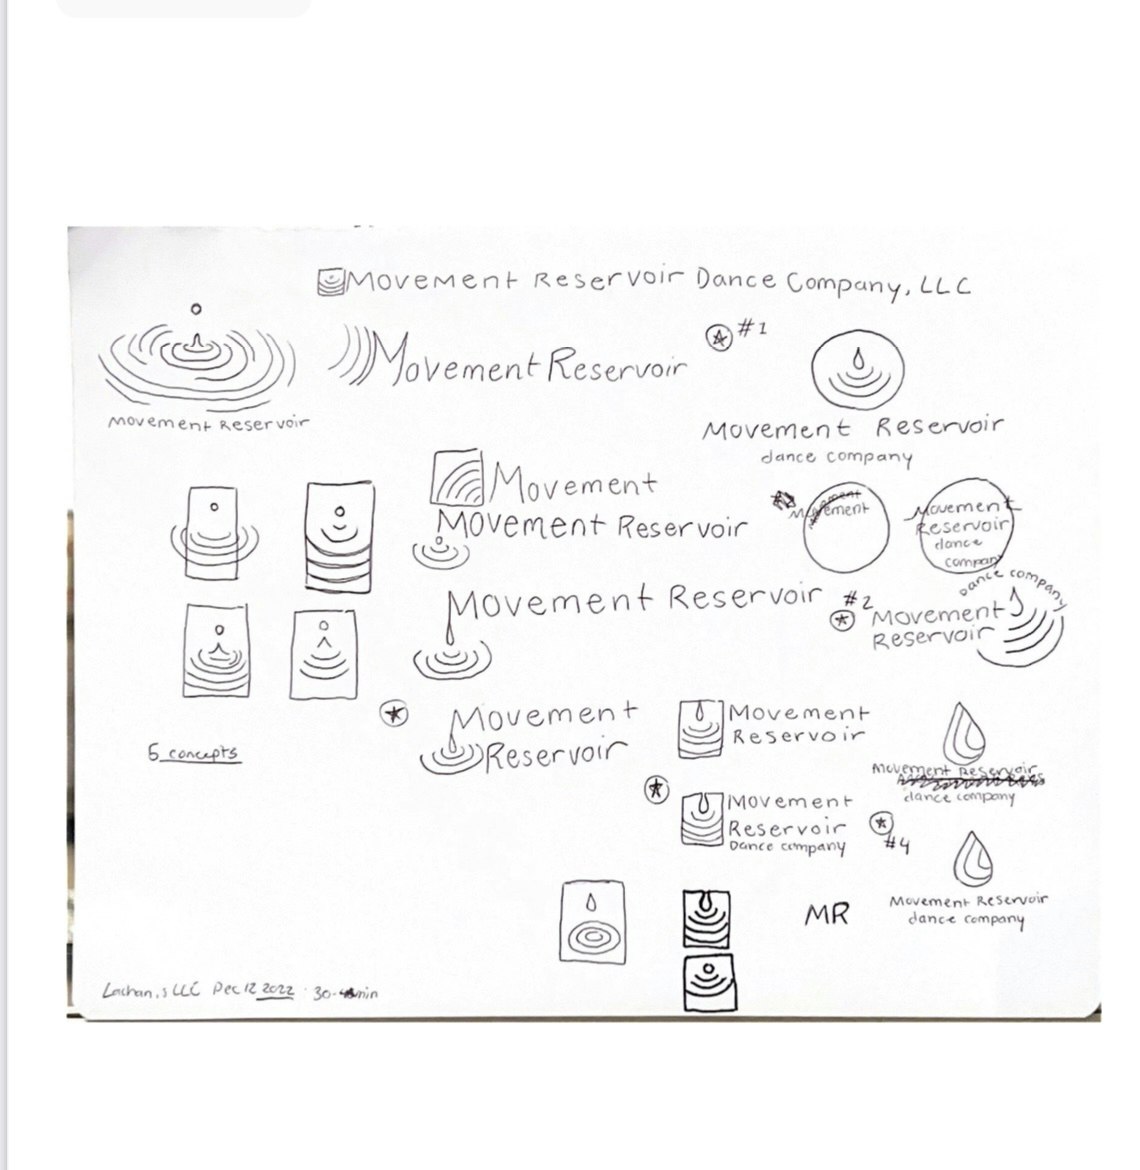 Movement Reservoir Dance Company, LLC
Movement Reservoir
Movement Reservoir
#1
Movement Reservoir
dance company
Movement
Movement Reservoir
Movement
Movement
Reservoir
dance
company
Movement Reservoir
#2
Movement
Reservoir
Dance company
Movement
Reservoir
5 concepts
Movement
Reservoir
Movement Reservoir
dance company
Movement
Reservoir
Dance company
#4
MR
Movement Reservoir
dance company
LLC Dec 12 2022